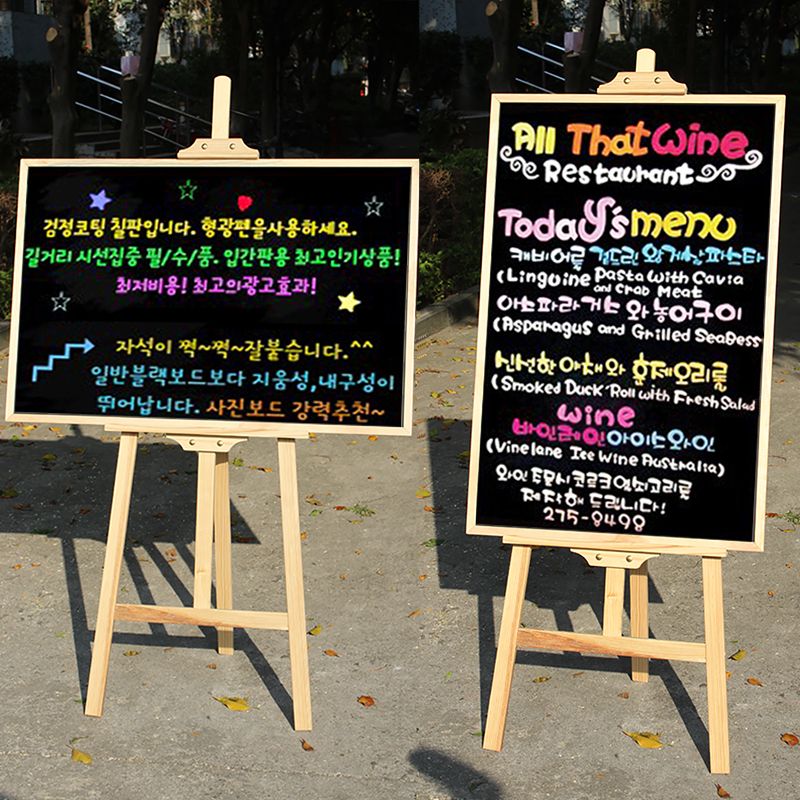 검정코팅 칠판입니다. 형광펜을사용하세요.
길거리 시선집중 필/수/품. 입간판용 최고인기상품!
최저비용! 최고의광고효과!
자석이 쩍~쩍~잘붙습니다.^^
일반블랙보드보다 지움성,내구성이
뛰어납니다. 사진보드 강력추천~
All That Wine
Restaurant
Today's menu
캐비어를 곁드린 왕게살파스타
(Linguine Pasta With Cavia
and Crab Meat
아스파라거스 와 농어구이
(Asparagus and Grilled SeaBess
신선한 야채와 훈제오리롤
(Smoked Duck Roll with Fresh Salad
Wine
바인레인아이스와인
(Vinelane Ice Wine Australia)
와인 드실시 코르크 열쇠고리를
제작해 드립니다!
275-8498